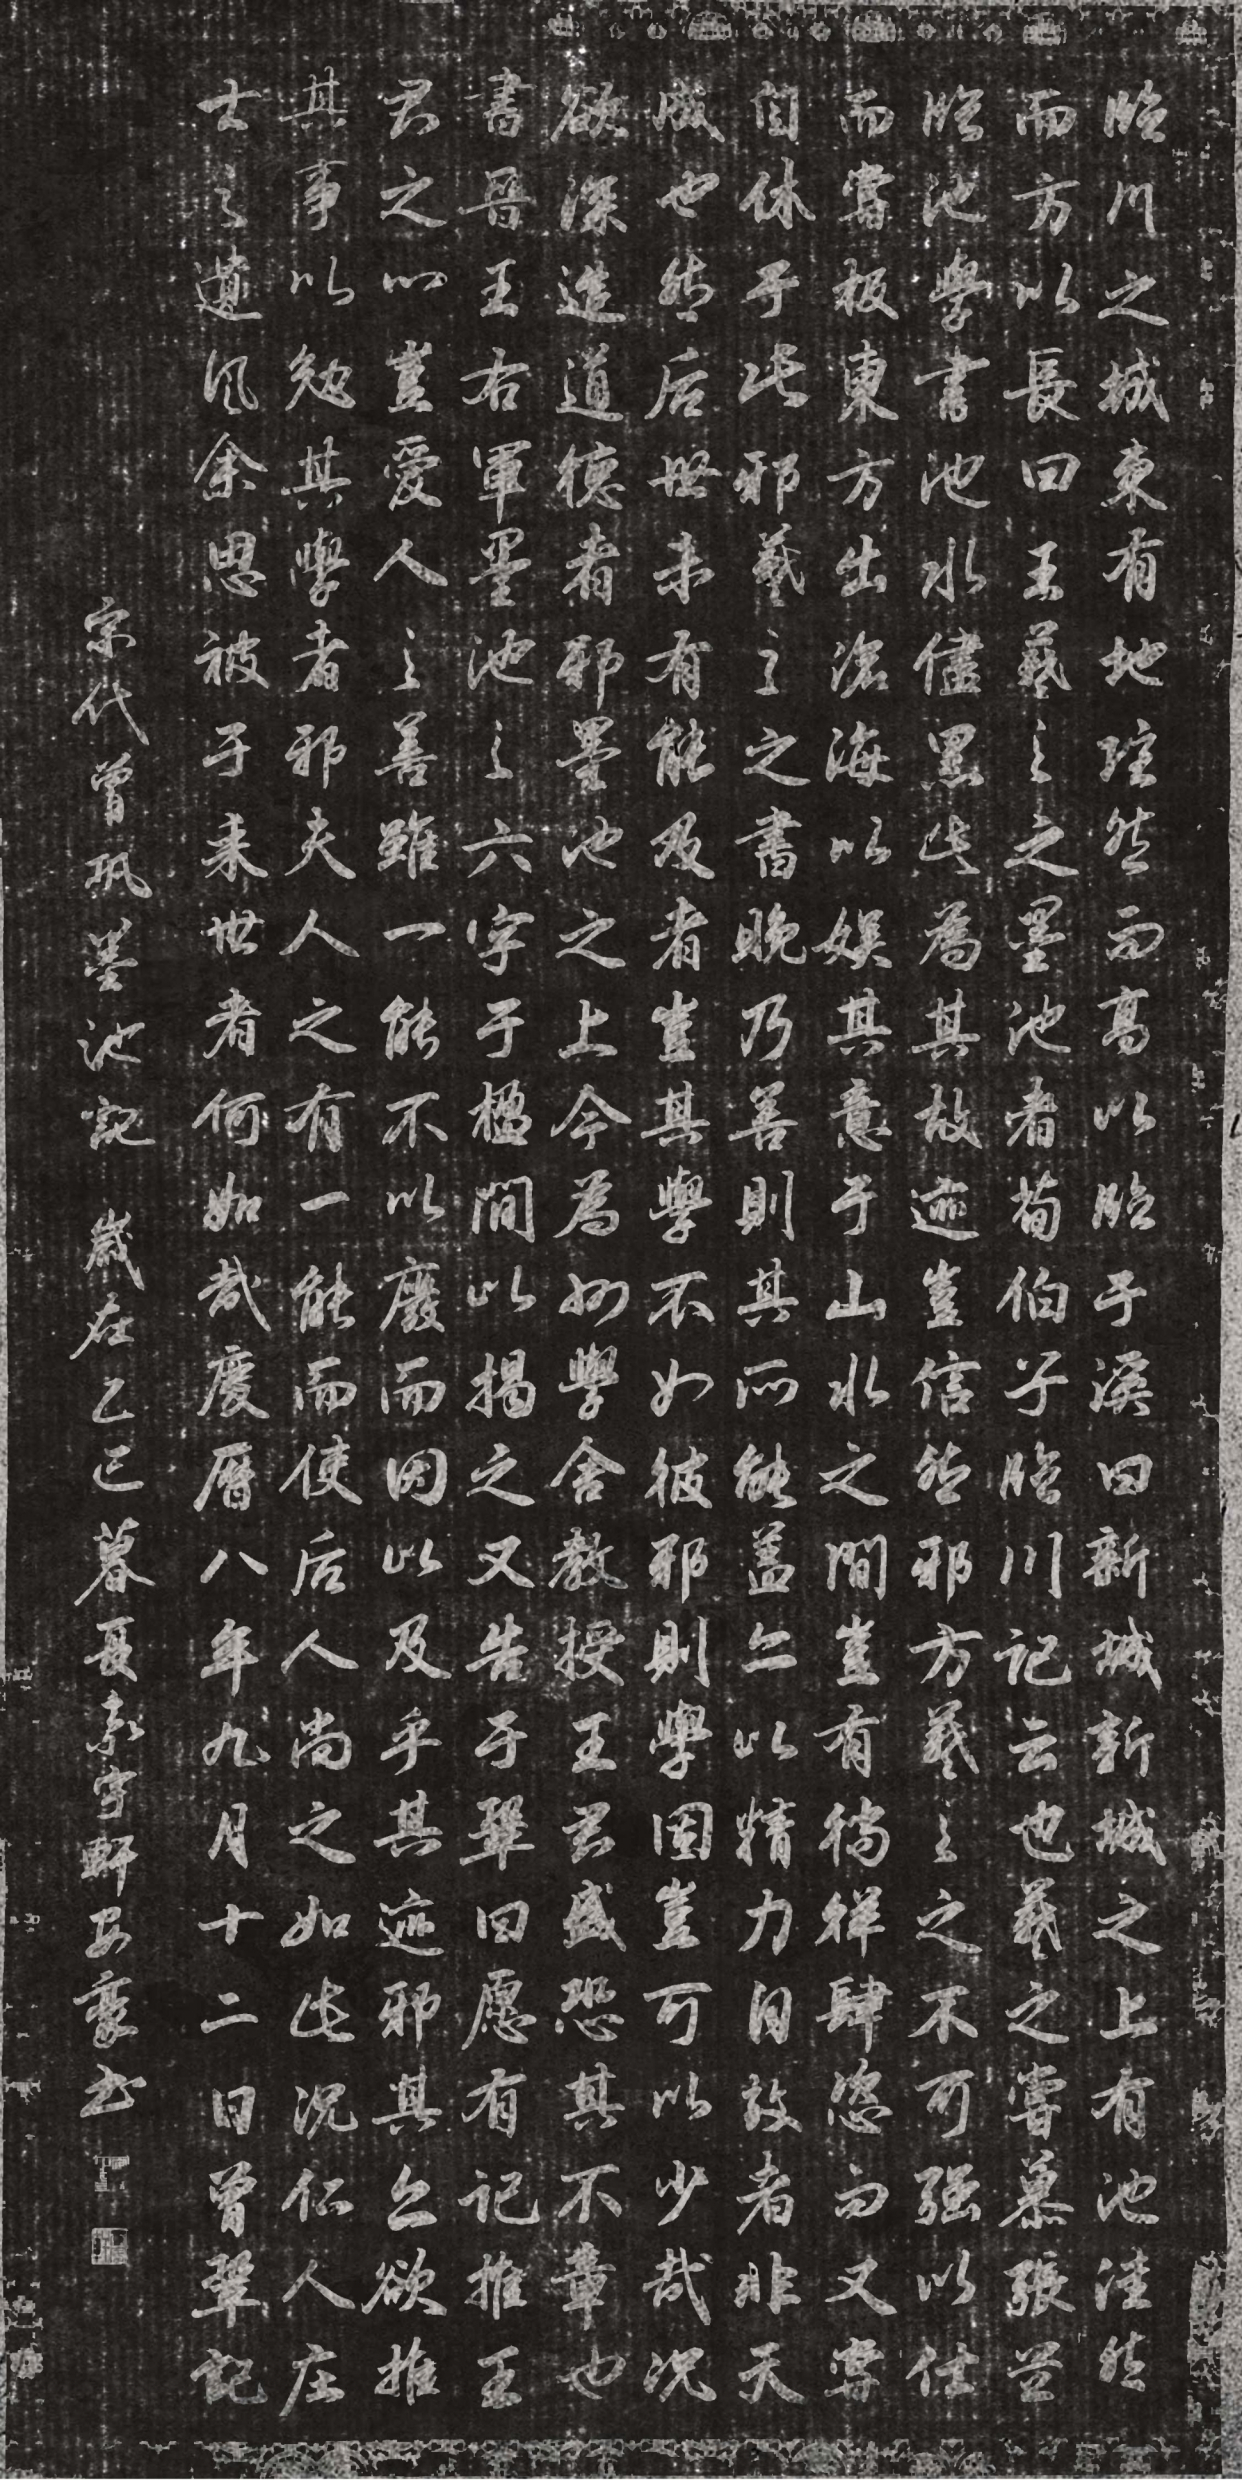 臨川之城東有地隱然而高以臨于溪曰新城新城之上有池洼然
而方以長曰王羲之之墨池者荀伯子臨川记云也羲之嘗慕張芝
臨池學書池水儘黑此為其故迹豈信然邪方羲之之不可强以仕
而嘗极東方出滄海以娱其意于山水之間豈有徜徉肆恣而又嘗
自休于此邪羲之之書晚乃善則其所能盖亦以精力自致者非天
成也然后世未有能及者豈其學不如彼邪則學固豈可以少哉况
欲深造道德者邪墨池之上今為州學舍教授王君盛恐其不章也
書晉王右軍墨池之六字于楹間以揭之又告于鞏曰愿有记推王
君之心豈愛人之善雖一能不以廢而因以及乎其迹邪其亦欲推
其事以勉其學者邪夫人之有一能而使后人尚之如此况仁人庄
士之遺風余思被于来世者何如哉慶曆八年九月十二日曾鞏記
宋代曾巩墨池記 歲在乙巳暮夏素宇軒安豪书